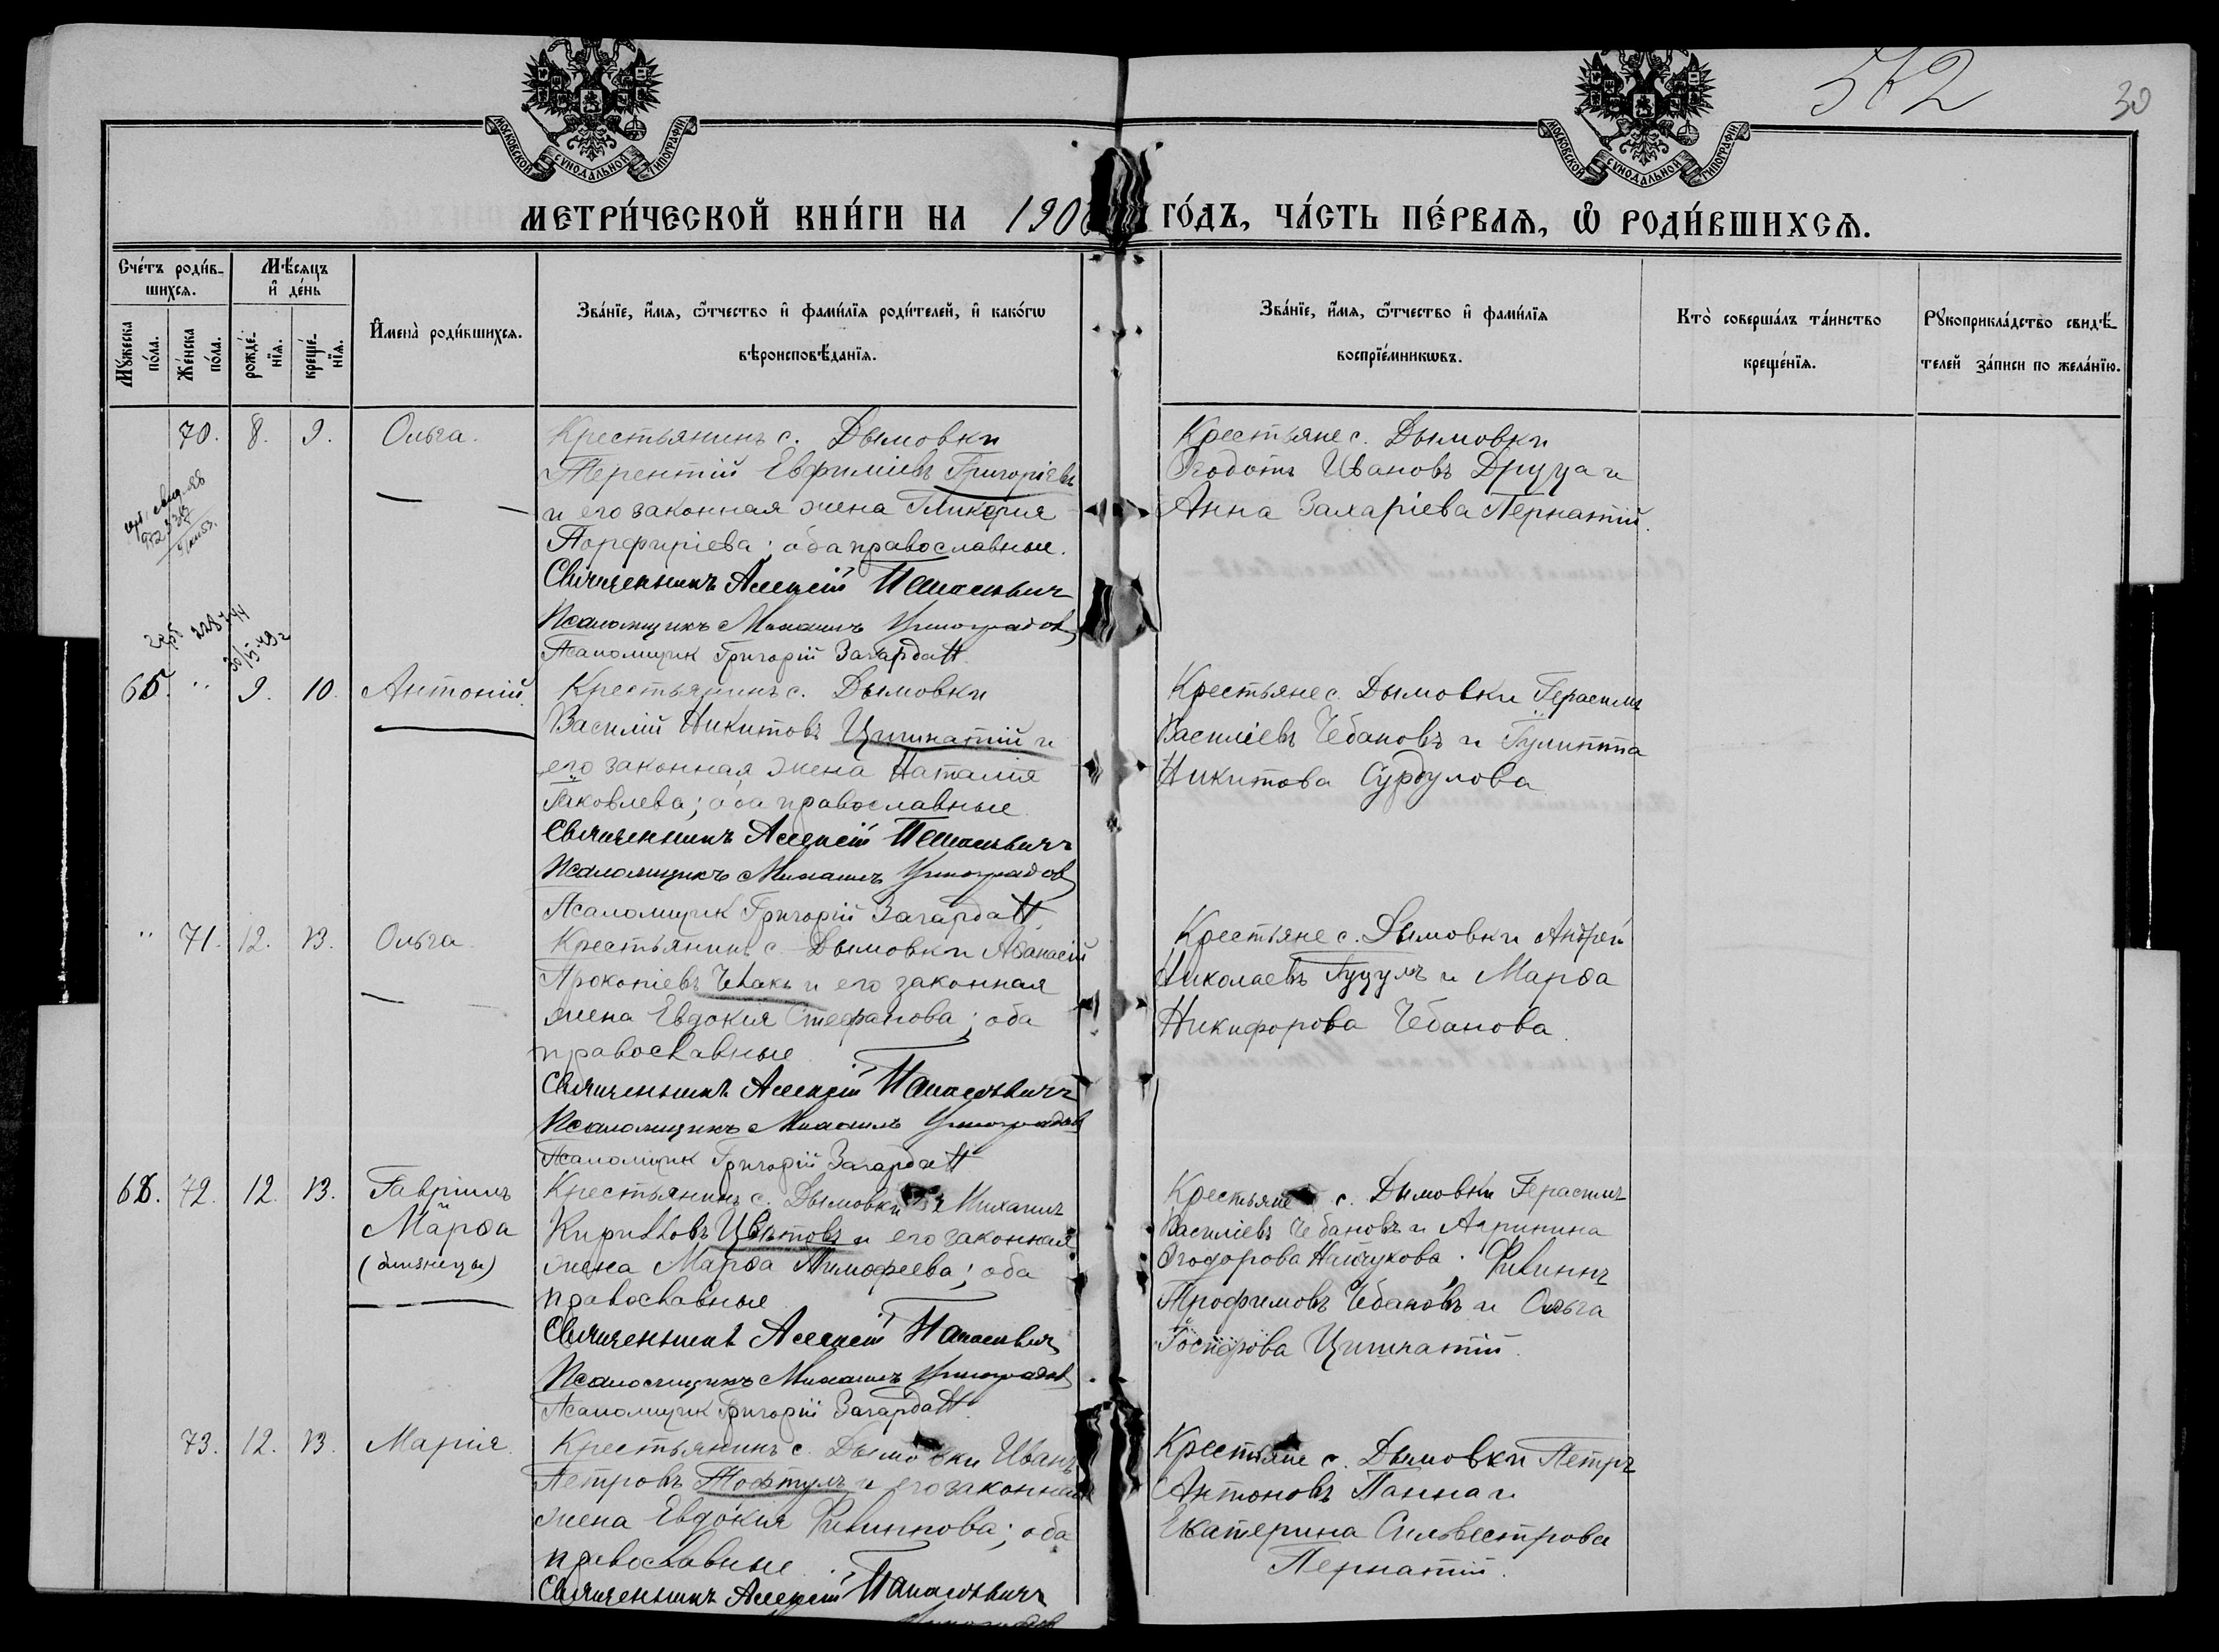 МОСКОВСКОЙ СѴНОДАЛЬНОЙ ТИПОГРАФІИ
МОСКОВСКОЙ СѴНОДАЛЬНОЙ ТИПОГРАФІИ
30
МЕТРИ́ЧЕСКОЙ КНИ́ГИ НА 190
ГО́ДЪ, ЧА́СТЬ ПЕ́РВАѦ, Ѽ РОДИ́ВШИХСѦ.
Сче́тъ роди́в-
шихсѧ.
Мѣ́сѧцъ
и҆ де́нь
Мꙋ́жеска
по́ла.
Же́нска
по́ла.
рожде́-
нїѧ.
креще́-
нїѧ.
И҆мена̀ роди́вшихсѧ.
Зва́нїе, и҆́мѧ, ѻ҆́тчество и҆ фами́лїѧ роди́телей, и҆ како́гѡ
вѣроисповѣ́данїѧ.
Зва́нїе, и҆́мѧ, ѻ҆́тчество и҆ фами́лїѧ
воспрїе́мникѡвъ.
Кто̀ соверша́лъ та́инство
креще́нїѧ.
Рꙋкоприкла́дство свидѣ́-
телей за́писи по жела́нїю.
70. 8. 9. Ольга.
Крестьянинъ с. Дымовки
Терентій Евфиміевъ Григоріевъ
и его законная жена Гликерія
Порфиріева; оба православные.
Священникъ Алексій
Псаломщикъ Михаилъ
Псаломщик Григорій
Крестьяне с. Дымовки
Ѳеодотъ Ивановъ Друца и
Анна Захаріева Пернатій.
9. 10. Антоній.
Крестьянинъ с. Дымовки
Василій Никитовъ Цишнатій и
его законная жена Наталія
Яковлева; оба православные
Священникъ Алексій
Псаломщикъ Михаилъ
Псаломщик Григорій
Крестьяне с. Дымовки Герасимъ
Василіевъ Чебановъ и Іулитта
Никитова Сурдулова
" 71. 12. 13. Ольга
Крестьянинъ с. Дымовки Аѳанасій
Прокопіевъ Челанъ и его законная
жена Евдокія Стефанова; оба
православные
Священникъ Алексій
Псаломщикъ Михаилъ
Псаломщик Григорій
Крестьяне с. Дымовки Андрей
Николаевъ Луцулъ и Марѳа
Никифорова Чебанова
72. 12. 13. Гавріилъ
и
Марѳа
(близнецы)
Крестьянинъ с. Дымовки Михаилъ
Кирилловъ Цвѣтовъ и его законная
жена Марѳа Тимофеева; оба
православные
Священникъ Алексій
Псаломщикъ Михаилъ
Псаломщик Григорій
Крестьяне с. Дымовки Герасимъ
Василіевъ Чебановъ и Агрипина
Ѳеодорова Найчукова. Филиппъ
Трофимовъ Чебановъ и Ольга
Цишнатій.
73. 12. 13. Марія.
Крестьянинъ с. Дымовки Иванъ
Петровъ Тофтулъ и его законная
жена Евдокія Филиппова; оба
православные
Священникъ Алексій
Крестьяне с. Дымовки Петръ
Антоновъ Панна и
Екатерина Сильвестрова
Пернатій.